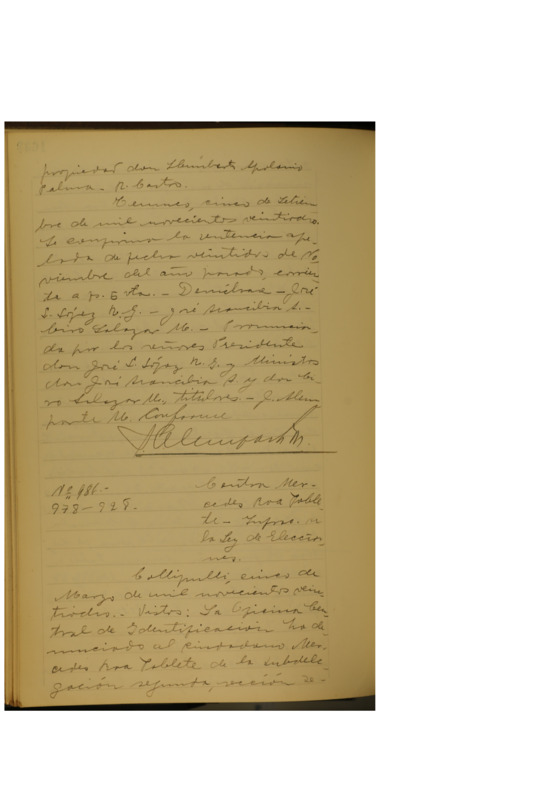 propiedad don Humberto Apolonio
Palma. - R. Castro.
Temuco, cinco de Setiem
bre de mil novecientos veintiocho.
Se confirma la sentencia ape-
lada de fecha veintidos de No
viembre del año pasado, escri
ta a fs. 6 vta. - Devuélvase - José
S. López R. G. - José Arancibia A. -
Ciro Salazar M. - Pronuncia-
da por los señores Presidente
don José S. López R. G. y Ministros
don José Arancibia A. y don Ci-
ro Salazar M. titulares. - J. Alem
parte M. Conforme
J Alemparte M.
Nº 986. -
978 - 928.
Contra Mer-
cedes Roa Poble
te - Infrac. a
la Ley de Eleccio
nes.
Collipulli, cinco de
Marzo de mil novecientos vein
tiocho. - Vistos: La Oficina Cen
tral de Identificación ha de-
nunciado al ciudadano Mer-
cedes Roa Poblete de la subdele-
gación segunda, sección se-